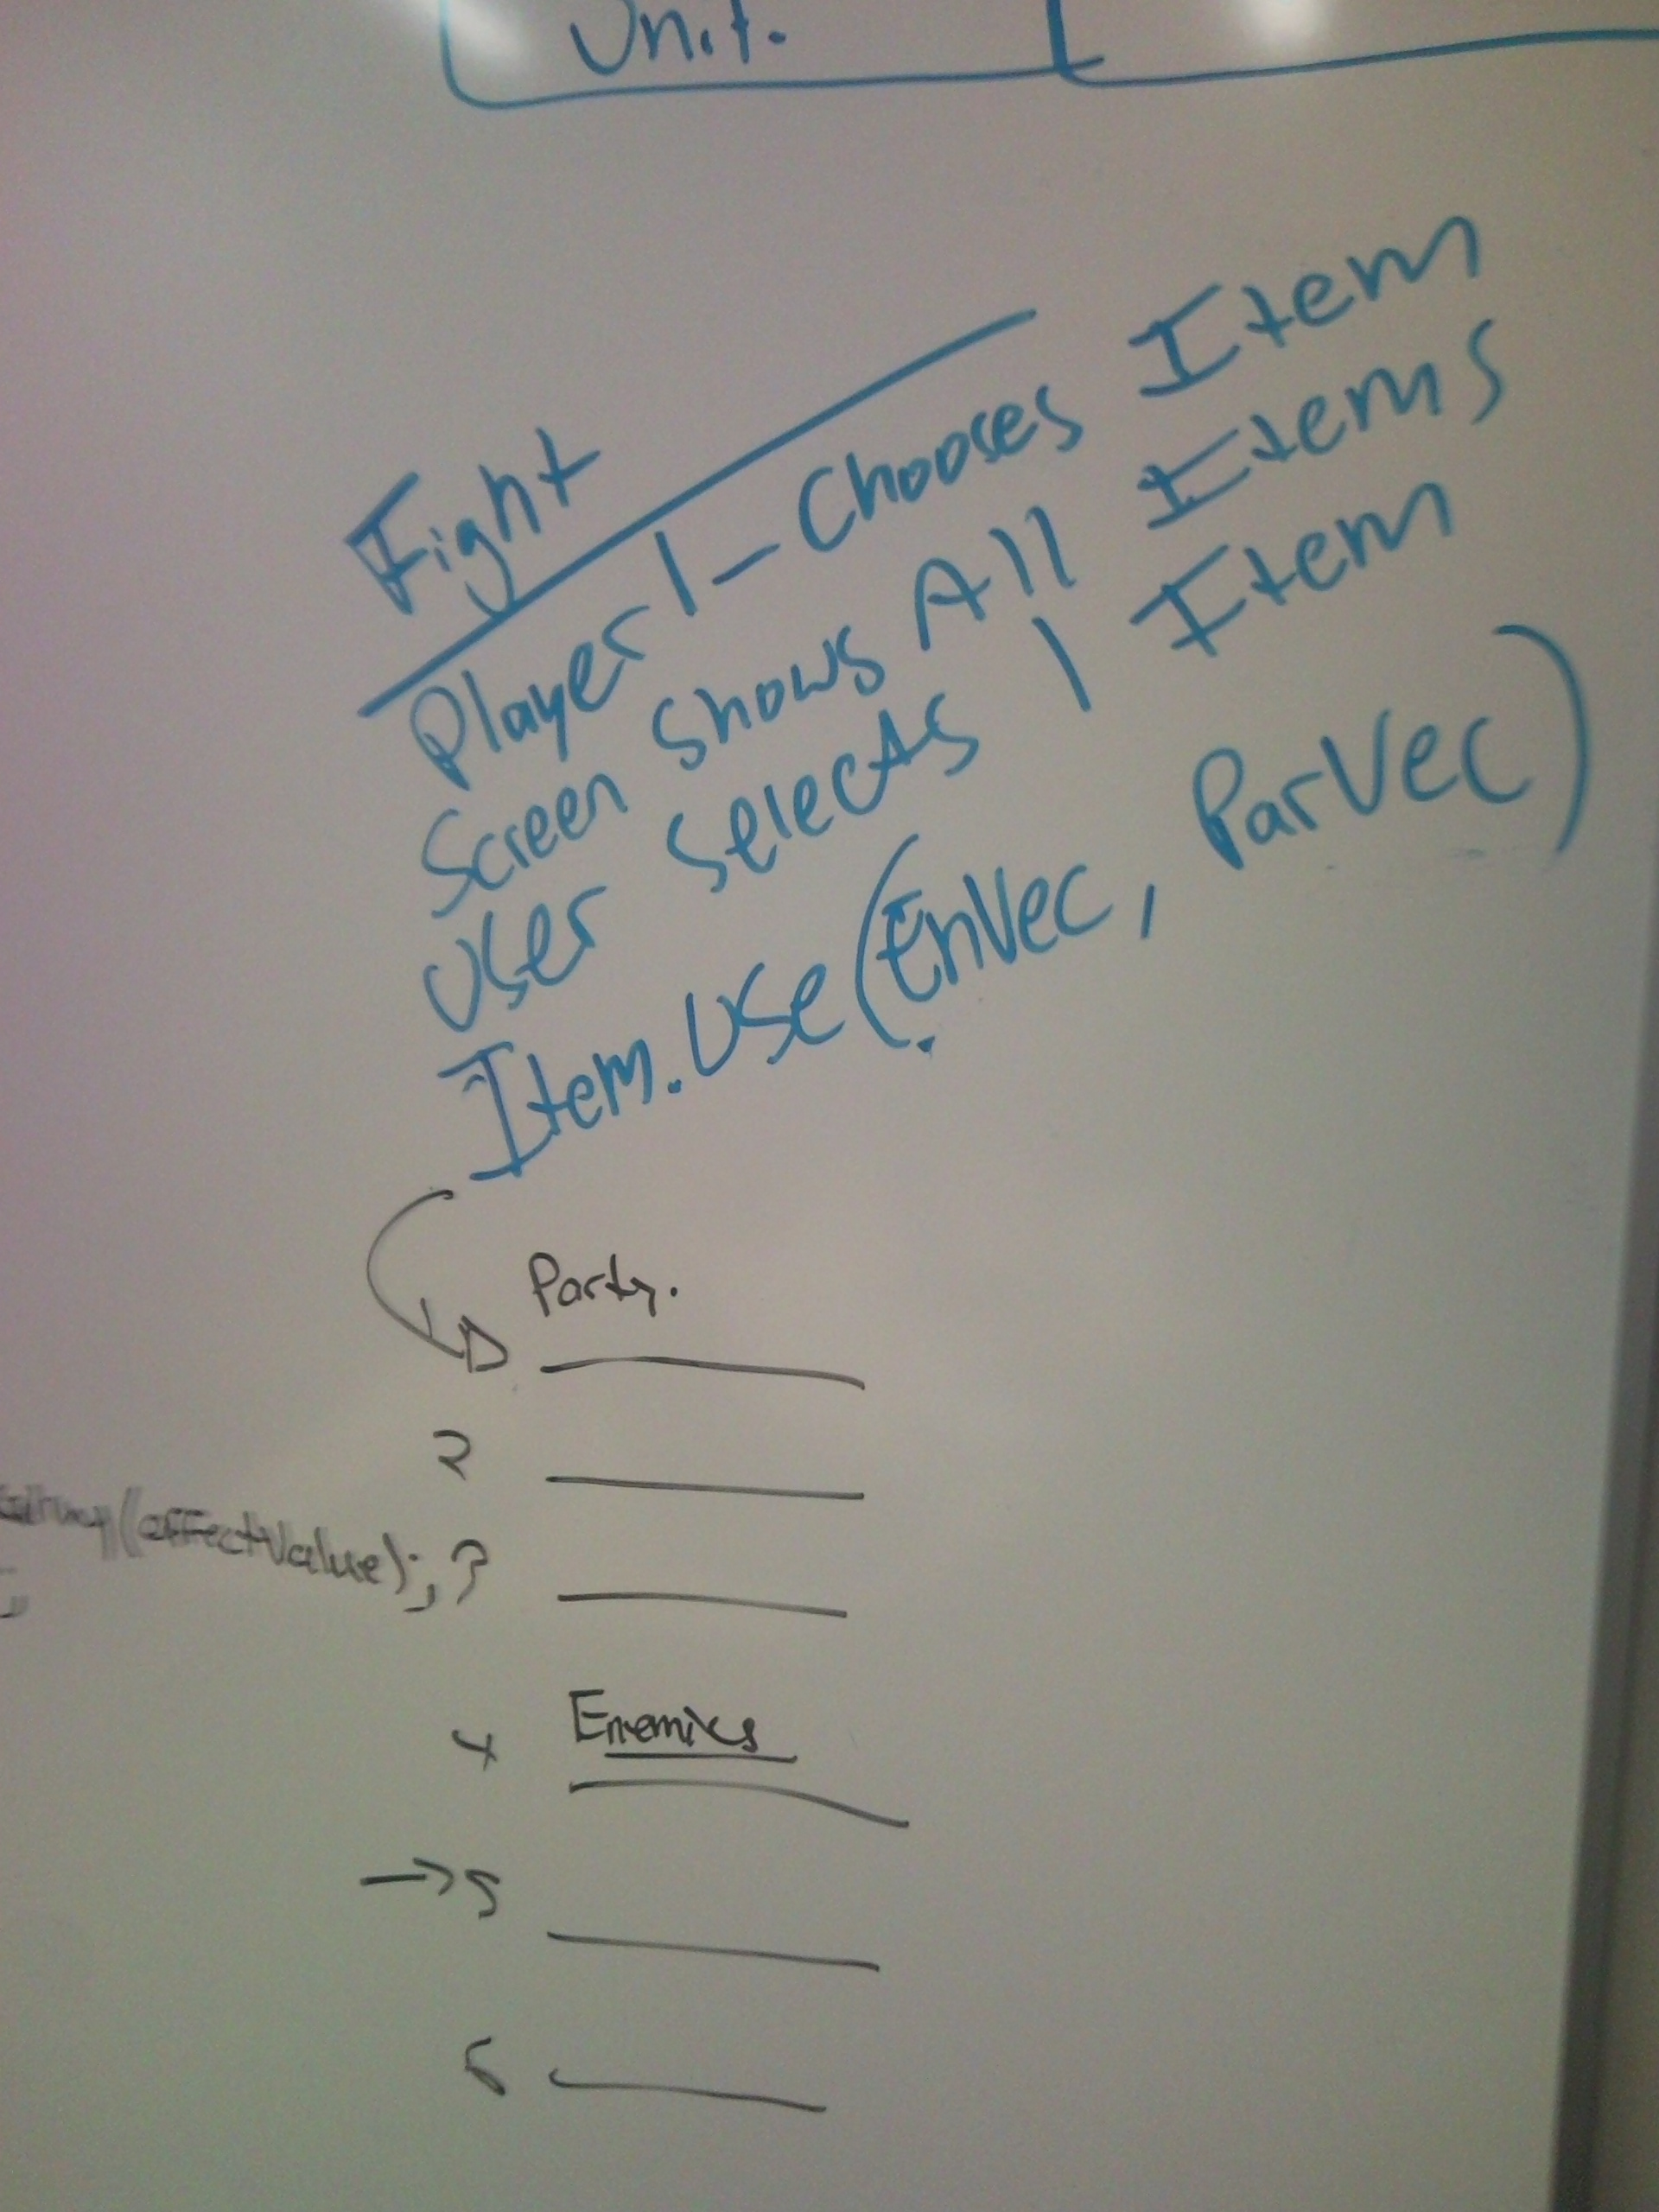 Unit.
Fight
Player 1 - Chooses Item
Screen shows All Items
User selects 1 Item
Item.Use(EnVec, ParVec)
Party.
1
2
(affectValue);
3
Enemies
4
→5
6